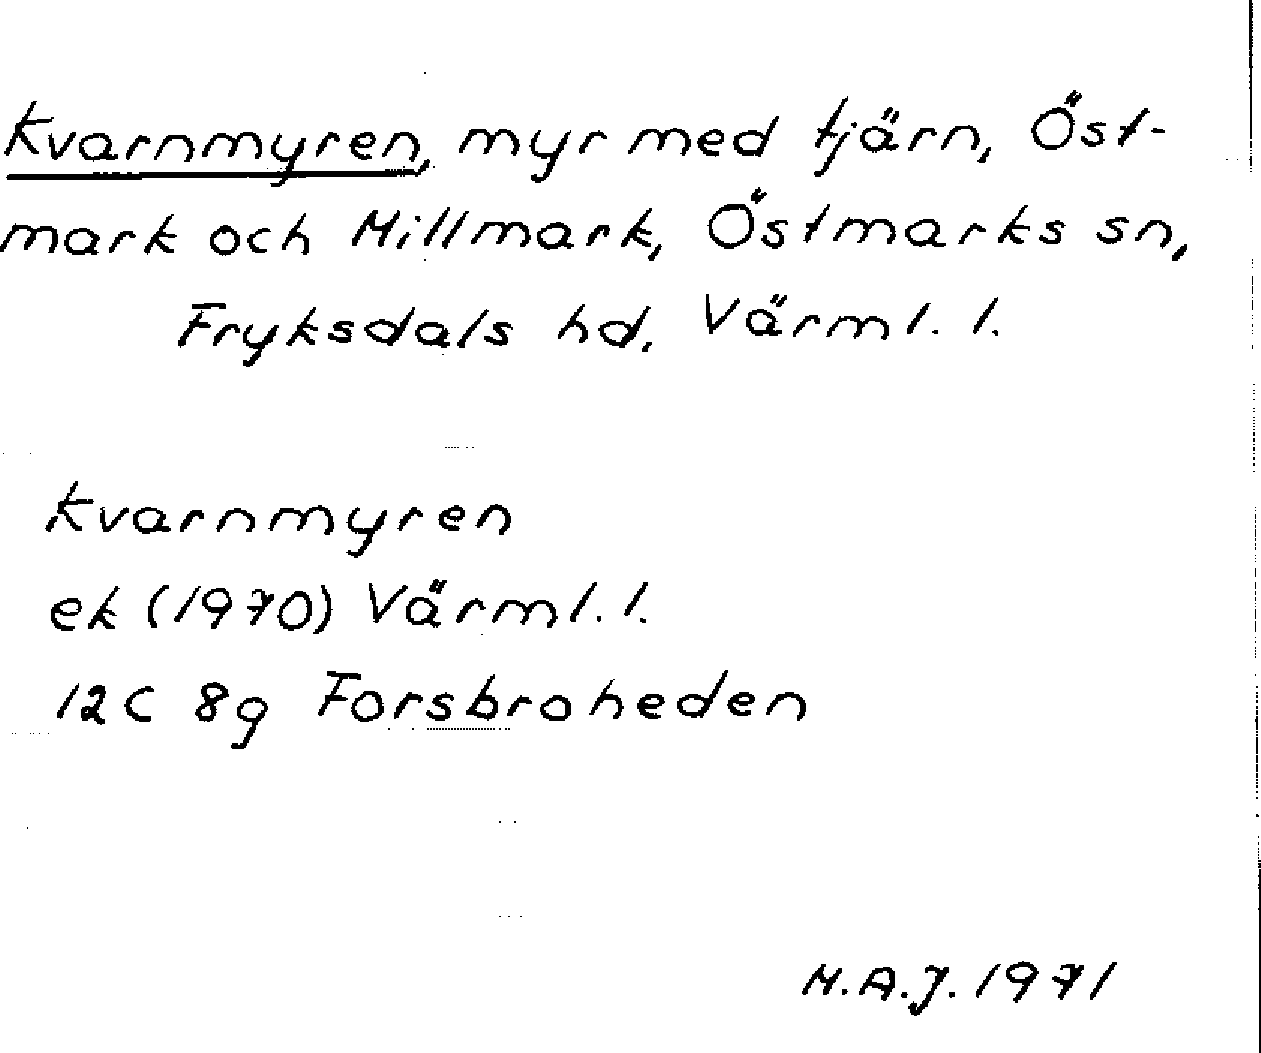 Kvarnmyren, myr med tjärn, Öst-
mark och Millmark, Östmarks sn,
Fryksdals hd. Värml. l.
Kvarnmyren
ek (1970) Värml. l.
12C 8g Forsbroheden
M.A.J. 1971